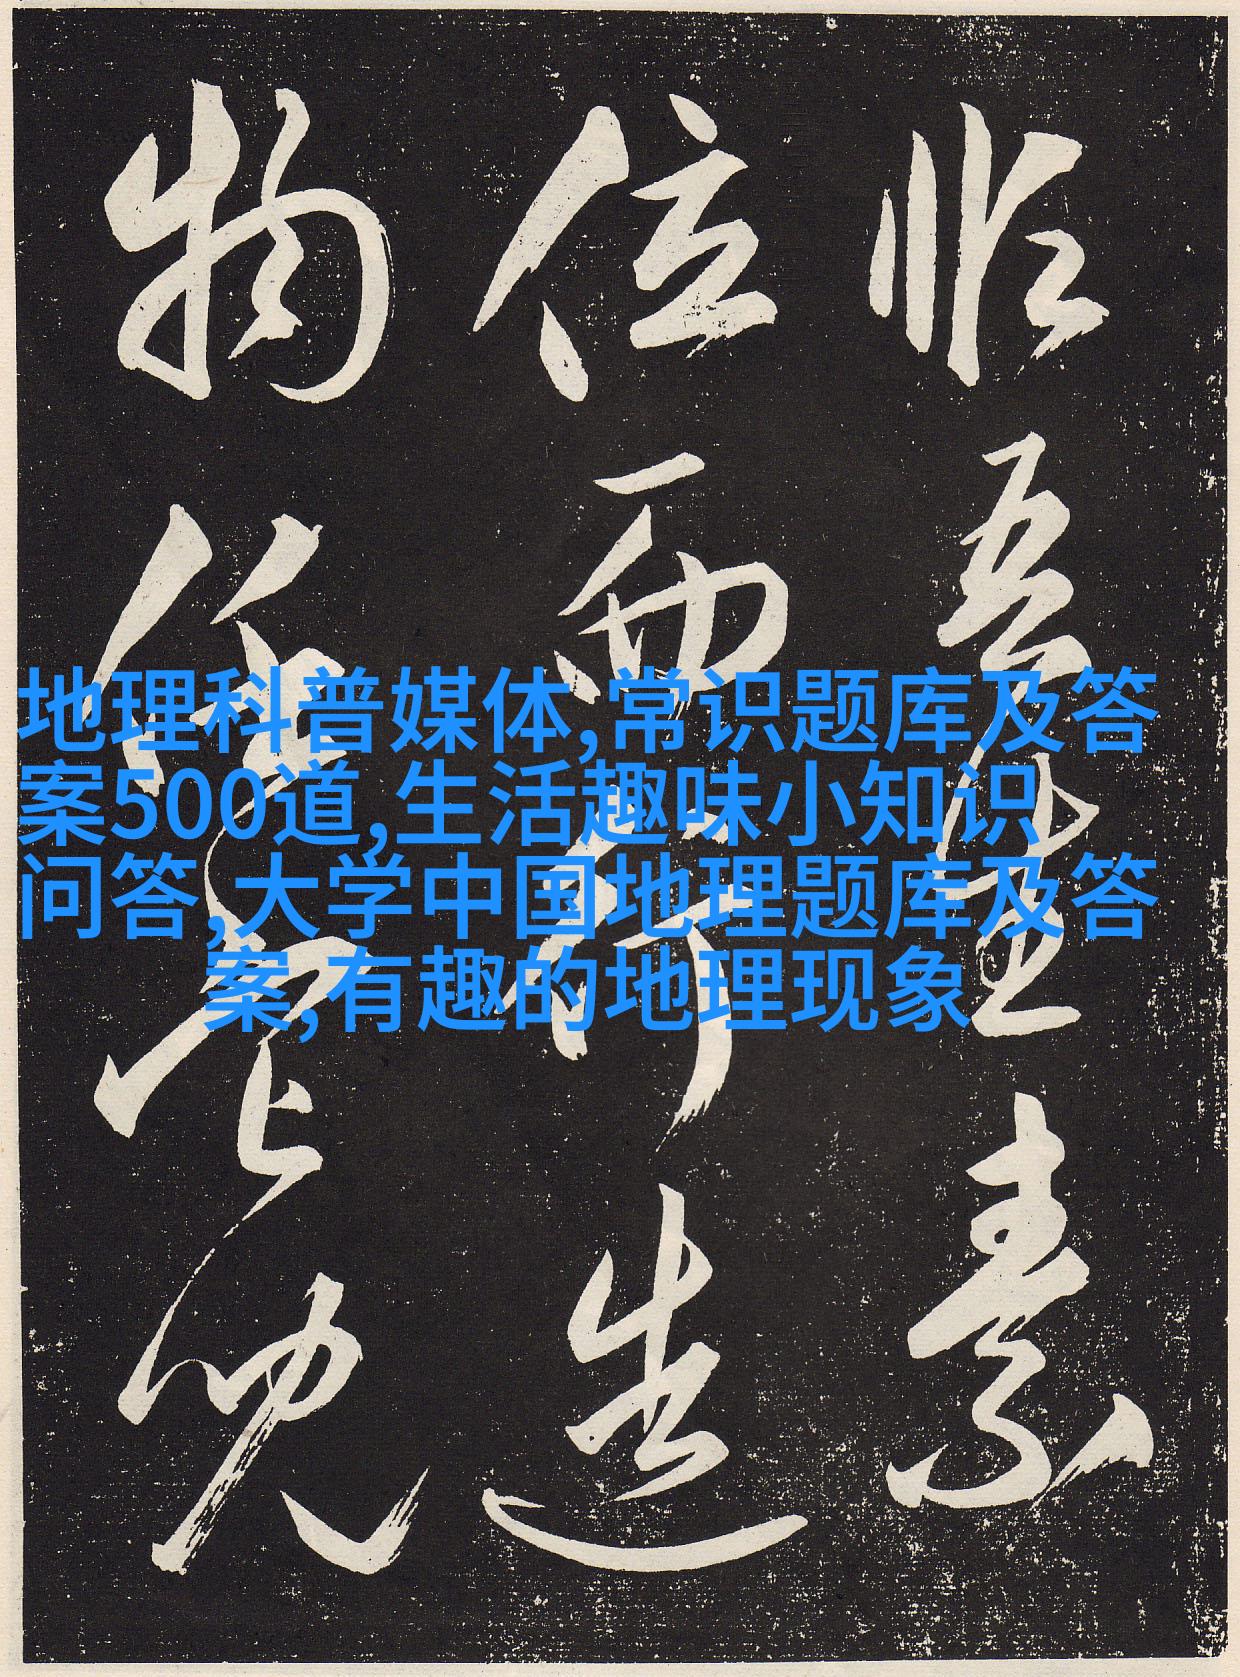 吾素
位而行造
物
地理科普媒体,常识题库及答
案500道,生活趣味小知识
问答,大学中国地理题库及答
案,有趣的地理现象